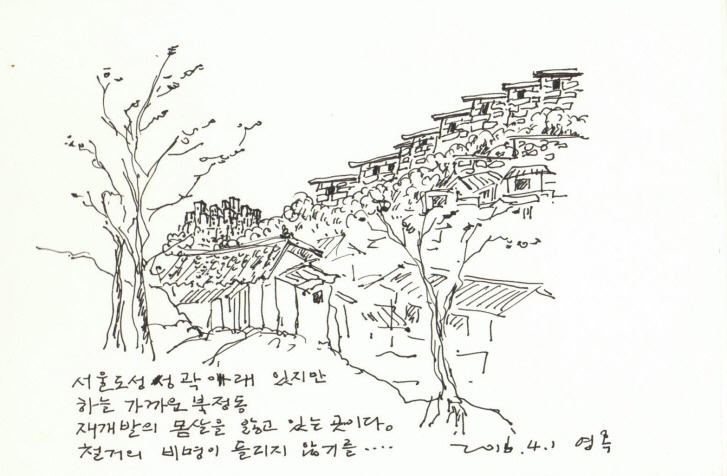 서울도성 성곽 아래 있지만
하늘 가까운 북정동
재개발의 몸살을 앓고 있는 곳이다.
철거의 비명이 들리지 않기를 ....
2016.4.1